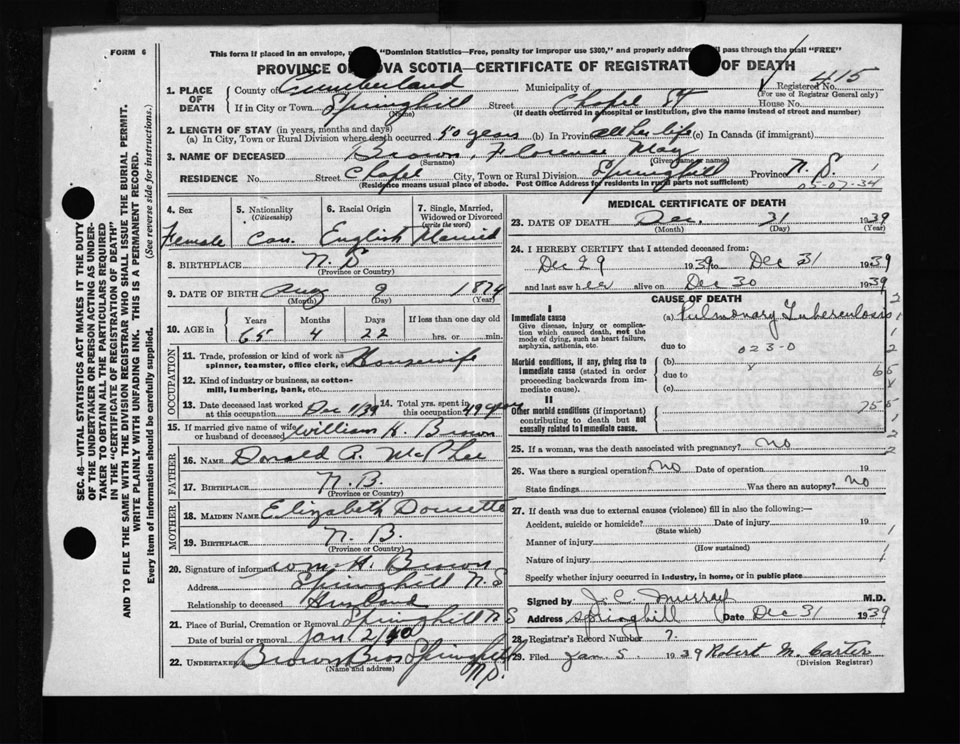 FORM 6
This form if placed in an envelope, "Dominion Statistics—Free, penalty for improper use $300," and properly address will pass through the mail "FREE"
PROVINCE OF NOVA SCOTIA—CERTIFICATE OF REGISTRATION OF DEATH
415
1. PLACE OF DEATH County of Cumberland Municipality of Registered No. (For use of Registrar General only)
If in City or Town Springhill (Name) Street Chapel St House No.
(If death occurred in a hospital or institution, give the name instead of street and number)
2. LENGTH OF STAY (in years, months and days)
(a) In City, Town or Rural Division where death occurred 50 years (b) In Province all her life (c) In Canada (if immigrant)
3. NAME OF DECEASED Brown, Florence May
(Surname) (Given name or names)
RESIDENCE No. Street Chapel City, Town or Rural Division Springhill Province N.S. 1
(Residence means usual place of abode. Post Office Address for residents in rural parts not sufficient) 05-07-34
4. Sex Female
5. Nationality (Citizenship) Can.
6. Racial Origin English
7. Single, Married, Widowed or Divorced (write the word) Married
8. BIRTHPLACE N.S
(Province or Country)
9. DATE OF BIRTH Aug 9 1874
(Month) (Day) (Year)
10. AGE in Years Months Days If less than one day old
65 4 22 hrs. or min.
OCCUPATION
11. Trade, profession or kind of work as spinner, teamster, office clerk, etc. Housewife
12. Kind of industry or business, as cotton-mill, lumbering, bank, etc.
13. Date deceased last worked at this occupation Dec 1/39 14. Total yrs. spent in this occupation 49 years
15. If married give name of wife or husband of deceased William H. Brown
FATHER
16. NAME Donald A. McPhee
17. BIRTHPLACE N.B.
(Province or Country)
MOTHER
18. MAIDEN NAME Elizabeth Doucette
19. BIRTHPLACE N.B.
(Province or Country)
20. Signature of informant Wm H. Brown
Address Springhill N.S
Relationship to deceased Husband
21. Place of Burial, Cremation or Removal Springhill N.S
Date of burial or removal Jan 2/40
22. UNDERTAKER Brown Bros Springhill N.S.
(Name and address)
MEDICAL CERTIFICATE OF DEATH
23. DATE OF DEATH Dec. 31 1939
(Month) (Day) (Year)
24. I HEREBY CERTIFY that I attended deceased from:
Dec 29 1939 to Dec 31 1939
and last saw her alive on Dec 30 1939
CAUSE OF DEATH
I
Immediate cause (a) Pulmonary Tuberculosis
Give disease, injury or complication which caused death, not the mode of dying, such as heart failure, asphyxia, asthenia, etc.
due to 023-0
Morbid conditions, if any, giving rise to immediate cause (stated in order proceeding backwards from immediate cause).
(b)
due to
(c)
II
Other morbid conditions (if important) contributing to death but not causally related to immediate cause.
25. If a woman, was the death associated with pregnancy? no
26. Was there a surgical operation no Date of operation 19
State findings Was there an autopsy? no
27. If death was due to external causes (violence) fill in also the following:—
Accident, suicide or homicide? Date of injury 19
(State which)
Manner of injury
(How sustained)
Nature of injury
Specify whether injury occurred in industry, in home, or in public place
Signed by J. C. Murray M.D.
Address Springhill Date Dec 31 1939
28. Registrar's Record Number 7.
29. Filed Jan 5 1939 Robert M. Carter
(Division Registrar)
SEC. 46—VITAL STATISTICS ACT MAKES IT THE DUTY OF THE UNDERTAKER OR PERSON ACTING AS UNDERTAKER TO OBTAIN ALL THE PARTICULARS REQUIRED IN THE "CERTIFICATE OF REGISTRATION OF DEATH" AND TO FILE THE SAME WITH THE DIVISION REGISTRAR WHO SHALL ISSUE THE BURIAL PERMIT.
WRITE PLAINLY WITH UNFADING INK. THIS IS A PERMANENT RECORD.
Every item of information should be carefully supplied. (See reverse side for instructions.)